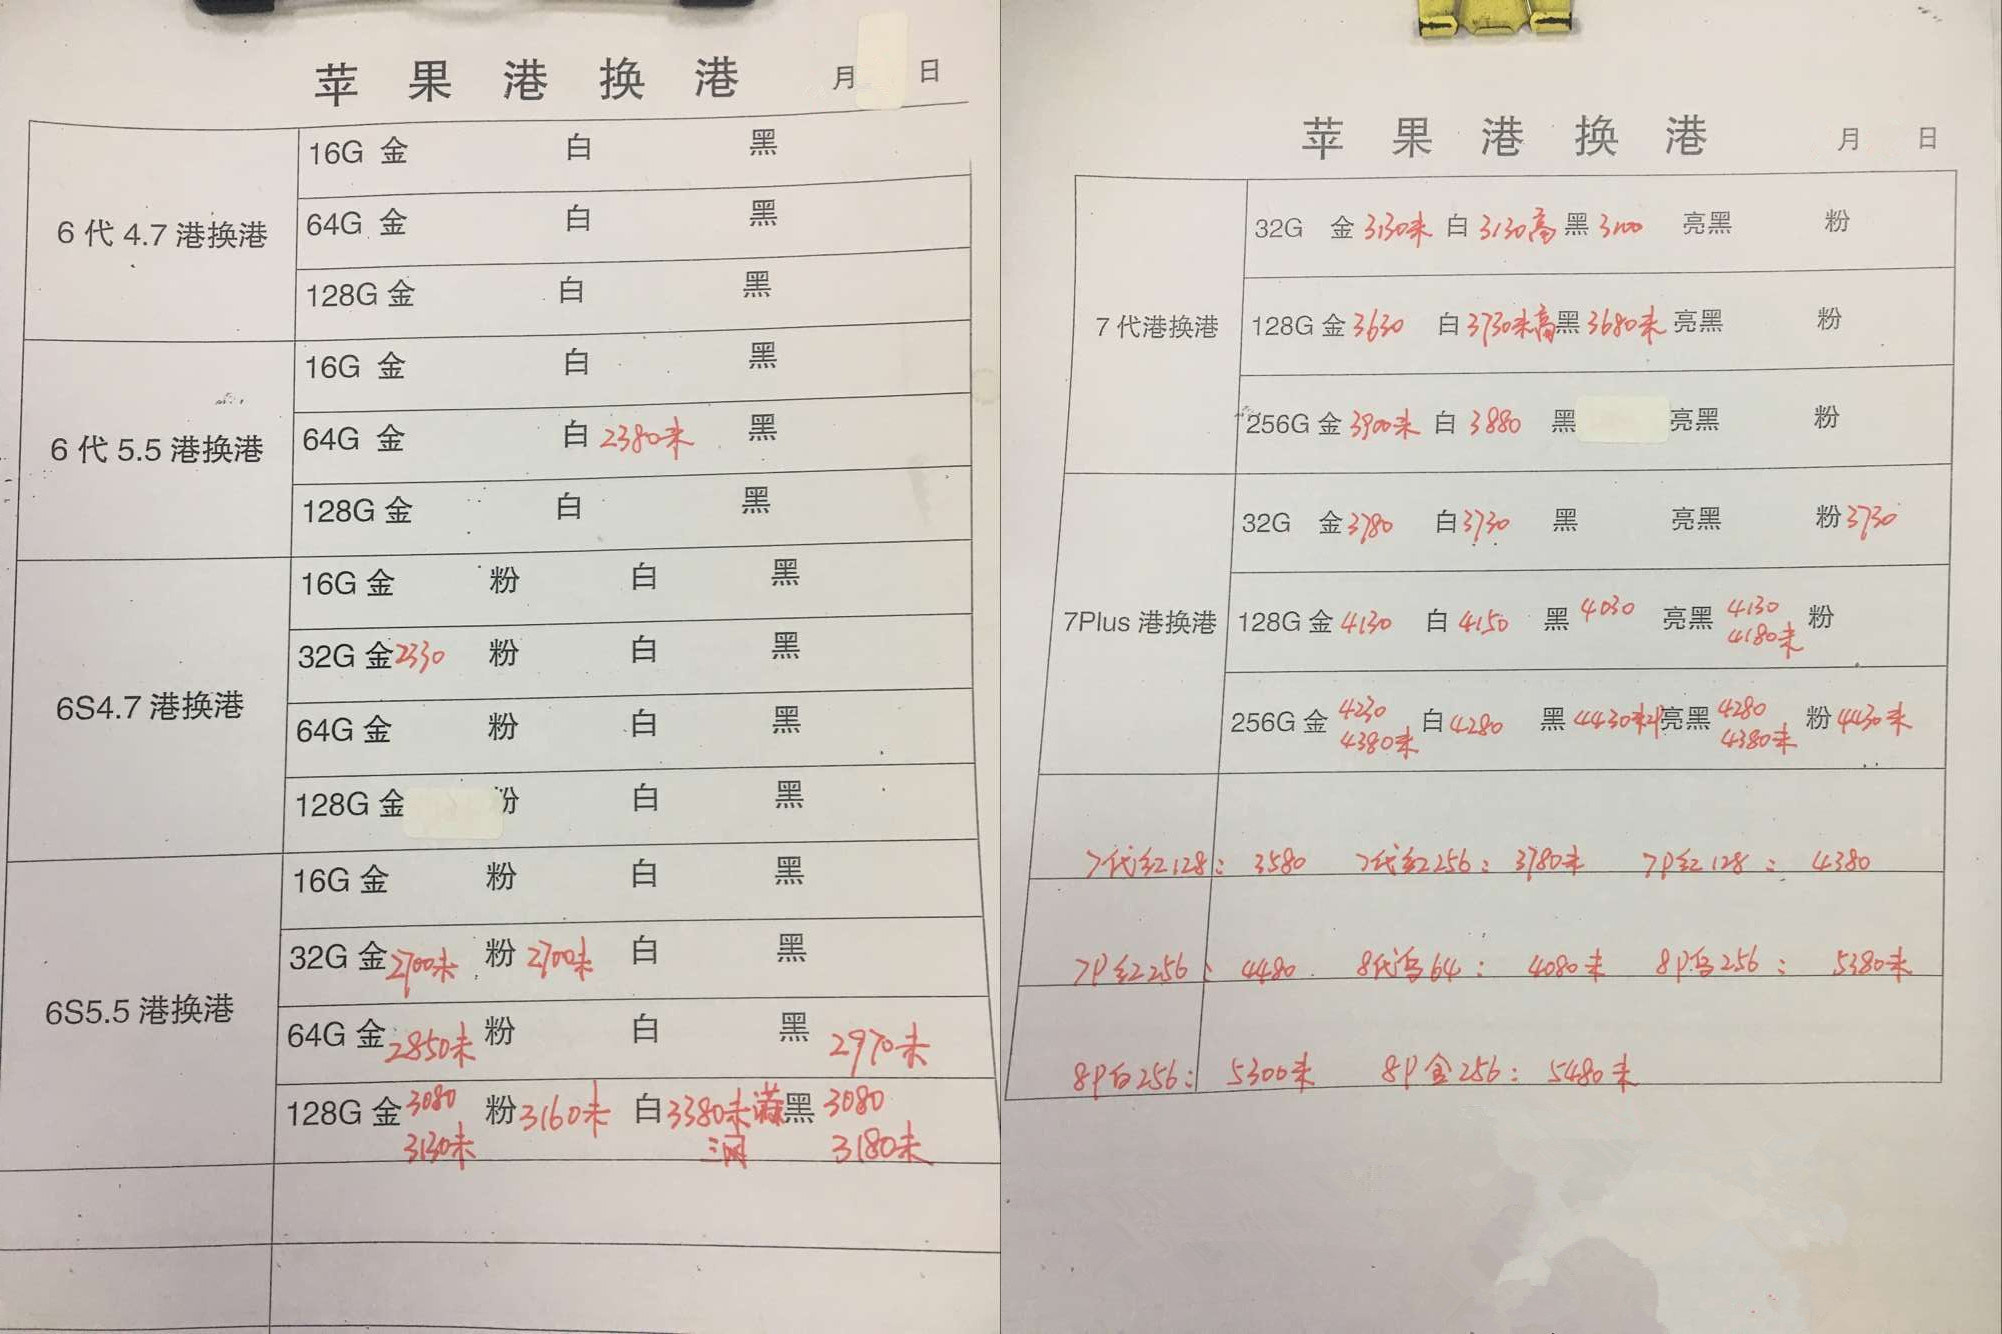 苹果港换港 月 日
6代4.7港换港
16G 金 白 黑
64G 金 白 黑
128G 金 白 黑
6代5.5港换港
16G 金 白 黑
64G 金 白 2380未 黑
128G 金 白 黑
6S4.7港换港
16G 金 粉 白 黑
32G 金 2330 粉 白 黑
64G 金 粉 白 黑
128G 金 粉 白 黑
6S5.5港换港
16G 金 粉 白 黑
32G 金 2700未 粉 2700未 白 黑
64G 金 2850未 粉 白 黑 2970未
128G 金 3080 粉 3160未 白 3380未 黑 3080
3130未 三网 3180未
苹果港换港 月 日
7代港换港
32G 金 3130未 白 3130高 黑 3100 亮黑 粉
128G 金 3630 白 3730未高 黑 3680未 亮黑 粉
256G 金 3900未 白 3880 黑 亮黑 粉
7Plus 港换港
32G 金 3780 白 3730 黑 亮黑 粉 3730
128G 金 4130 白 4150 黑 4030 亮黑 4130 粉
4180未
256G 金 4230 白 4280 黑 4430未 亮黑 4280 粉 4430未
4380未 4380未
7代红128: 3580 7代红256: 3780未 7P红128: 4380
7P红256: 4480 8代 64: 4080未 8P 256: 5380未
8P白256: 5300未 8P金256: 5480未